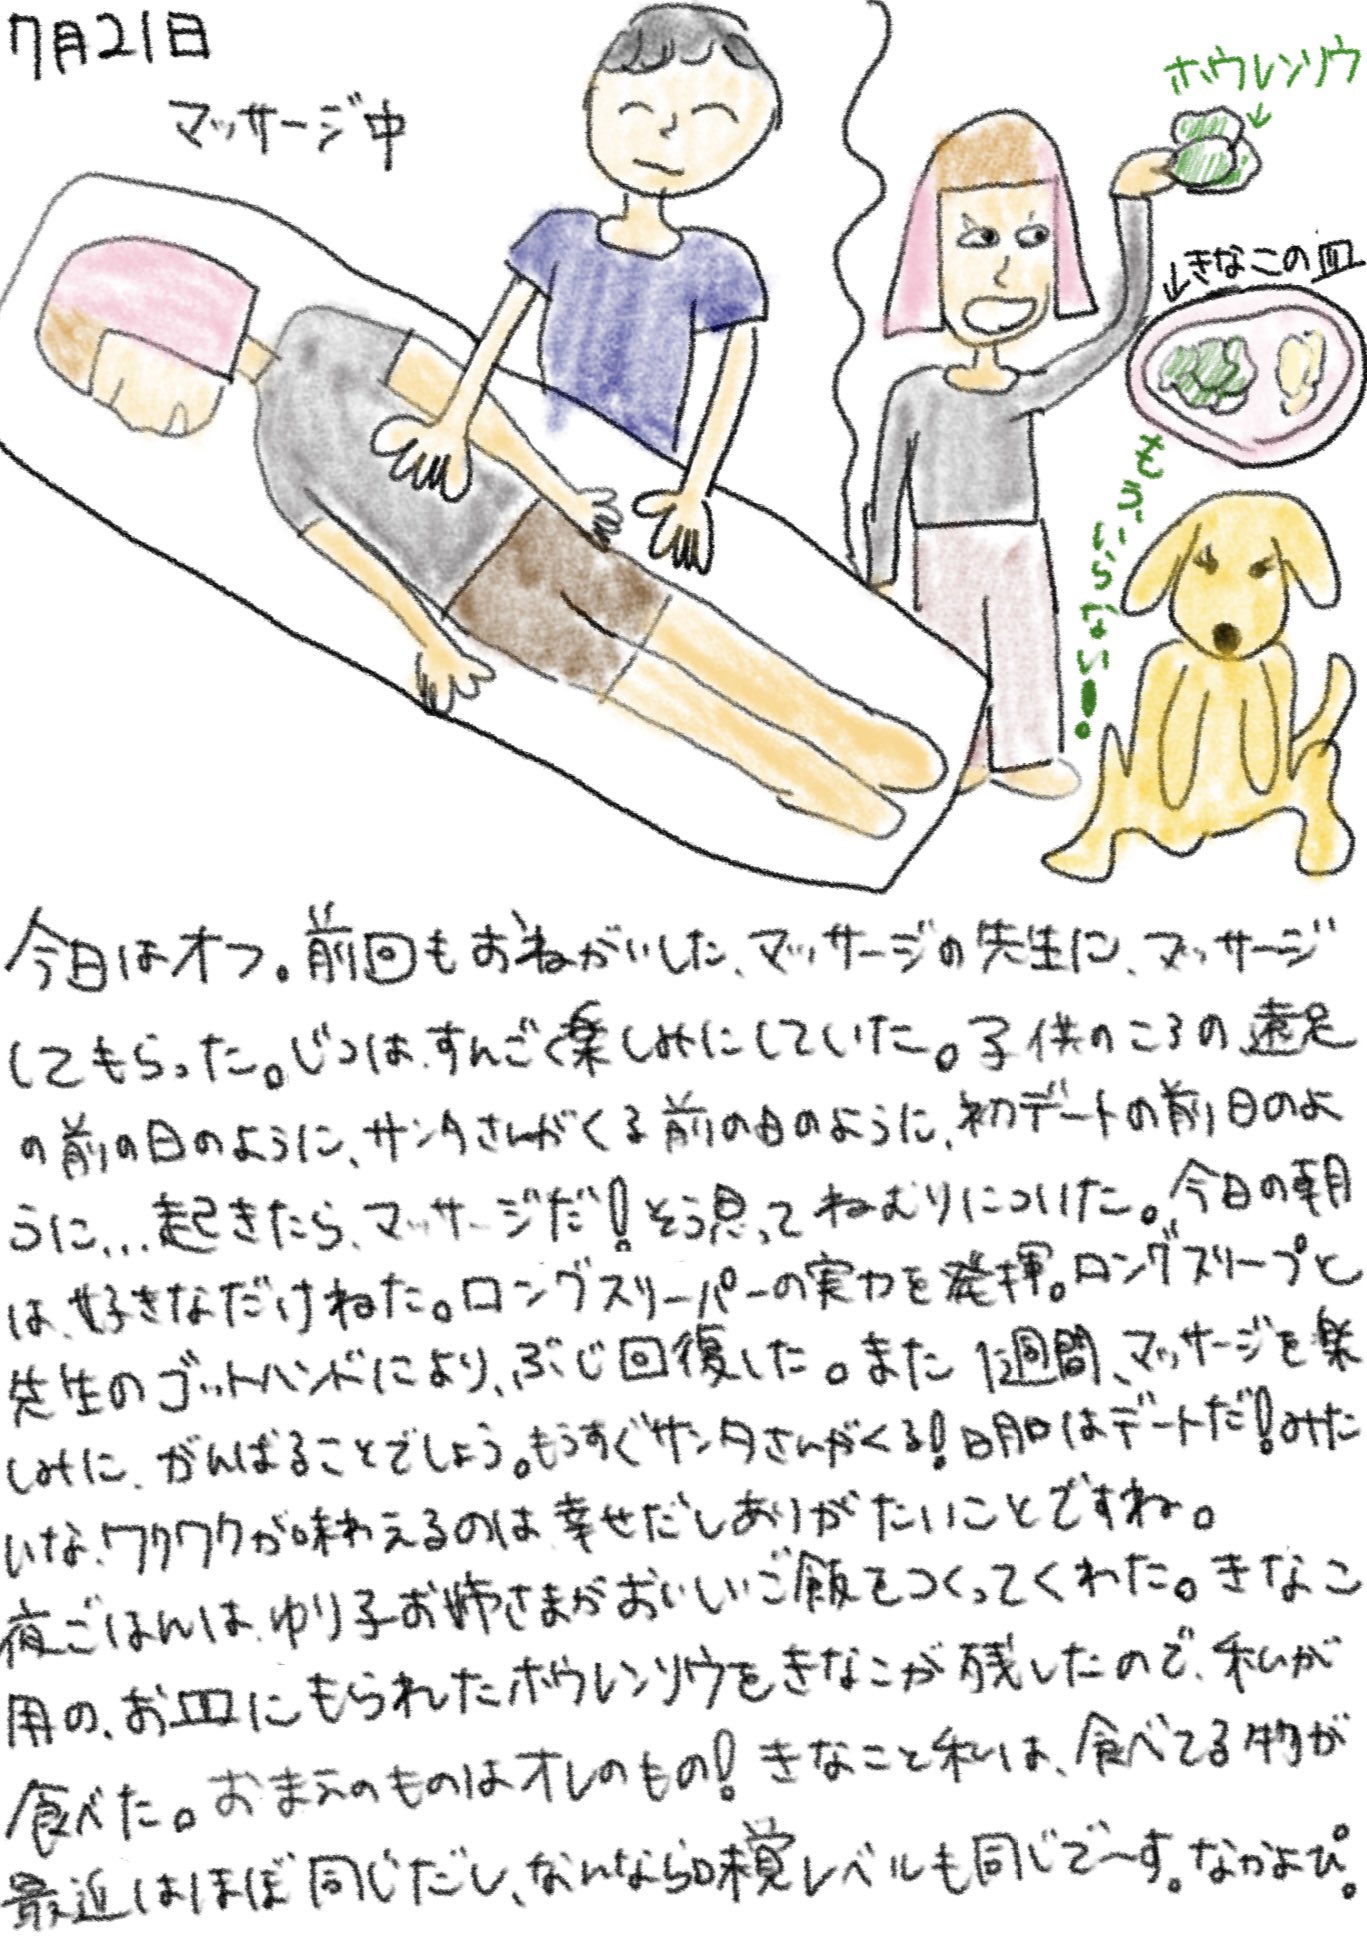 7月21日
マッサージ中
ホウレンソウ
きなこの皿
もう、いらない!。
今日はオフ。前回もおねがいした、マッサージの先生に、マッサージ
してもらった。じつは、すんごく楽しみにしていた。子供のころの遠足
の前の日のように、サンタさんがくる前の日のように、初デートの前日のよ
うに...起きたら、マッサージだ!そう思ってねむりについた。今日の朝
は、好きなだけねた。ロングスリーパーの実力を発揮。ロングスリープと
先生のゴットハンドにより、ぶじ回復した。また1週間、マッサージを楽
しみに、がんばることでしょう。もうすぐサンタさんがくる!明日はデートだ!みた
いな、ワクワクが味わえるのは、幸せだしありがたいことですね。
夜ごはんは、ゆり子お姉さまがおいしいご飯をつくってくれた。きなこ
用の、お皿にもられたホウレンソウをきなこが残したので、私が
食べた。おまえのものはオレのもの!きなこと私は、食べてる物が
最近はほぼ同じだし、なんなら味覚レベルも同じで〜す。なかよぴ。